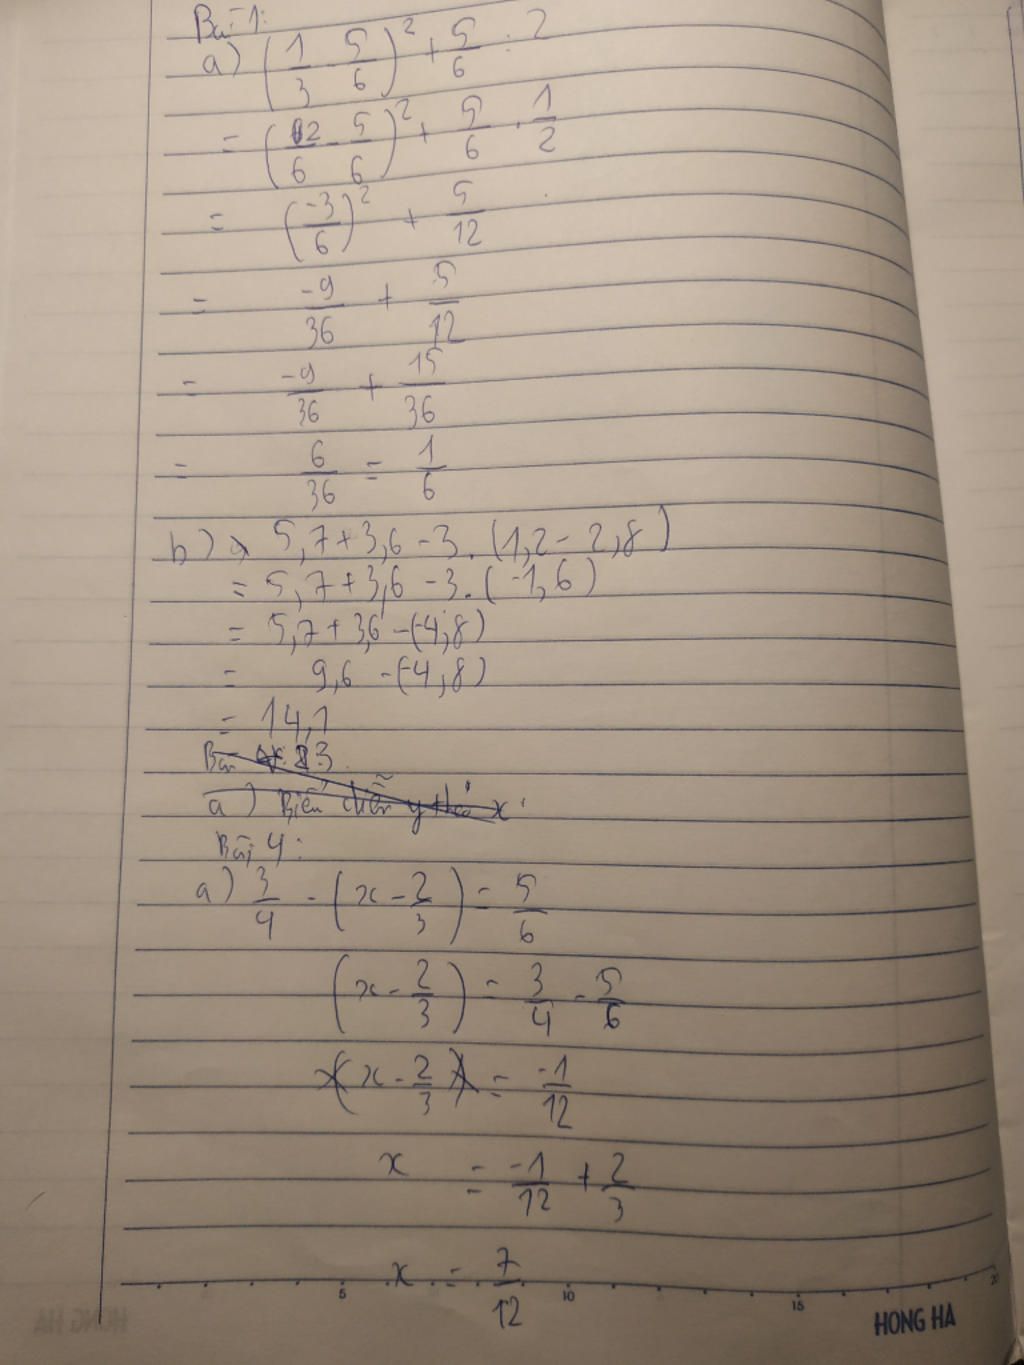 Bài 1:
a) (1/3 - 5/6)² + 5/6 : 2
= (2/6 - 5/6)² + 5/6 . 1/2
= (-3/6)² + 5/12
= -9/36 + 5/12
= -9/36 + 15/36
= 6/36 = 1/6
b) 5,7 + 3,6 - 3. (1,2 - 2,8)
= 5,7 + 3,6 - 3. (-1,6)
= 5,7 + 3,6 - (-4,8)
= 9,6 - (-4,8)
= 14,1
Bài 3
a) Biểu diễn y theo x
Bài 4:
a) 3/4 - (x - 2/3) = 5/6
(x - 2/3) = 3/4 - 5/6
x - 2/3 = -1/12
x = -1/12 + 2/3
x = 7/12
5 10 15 20
HONG HA